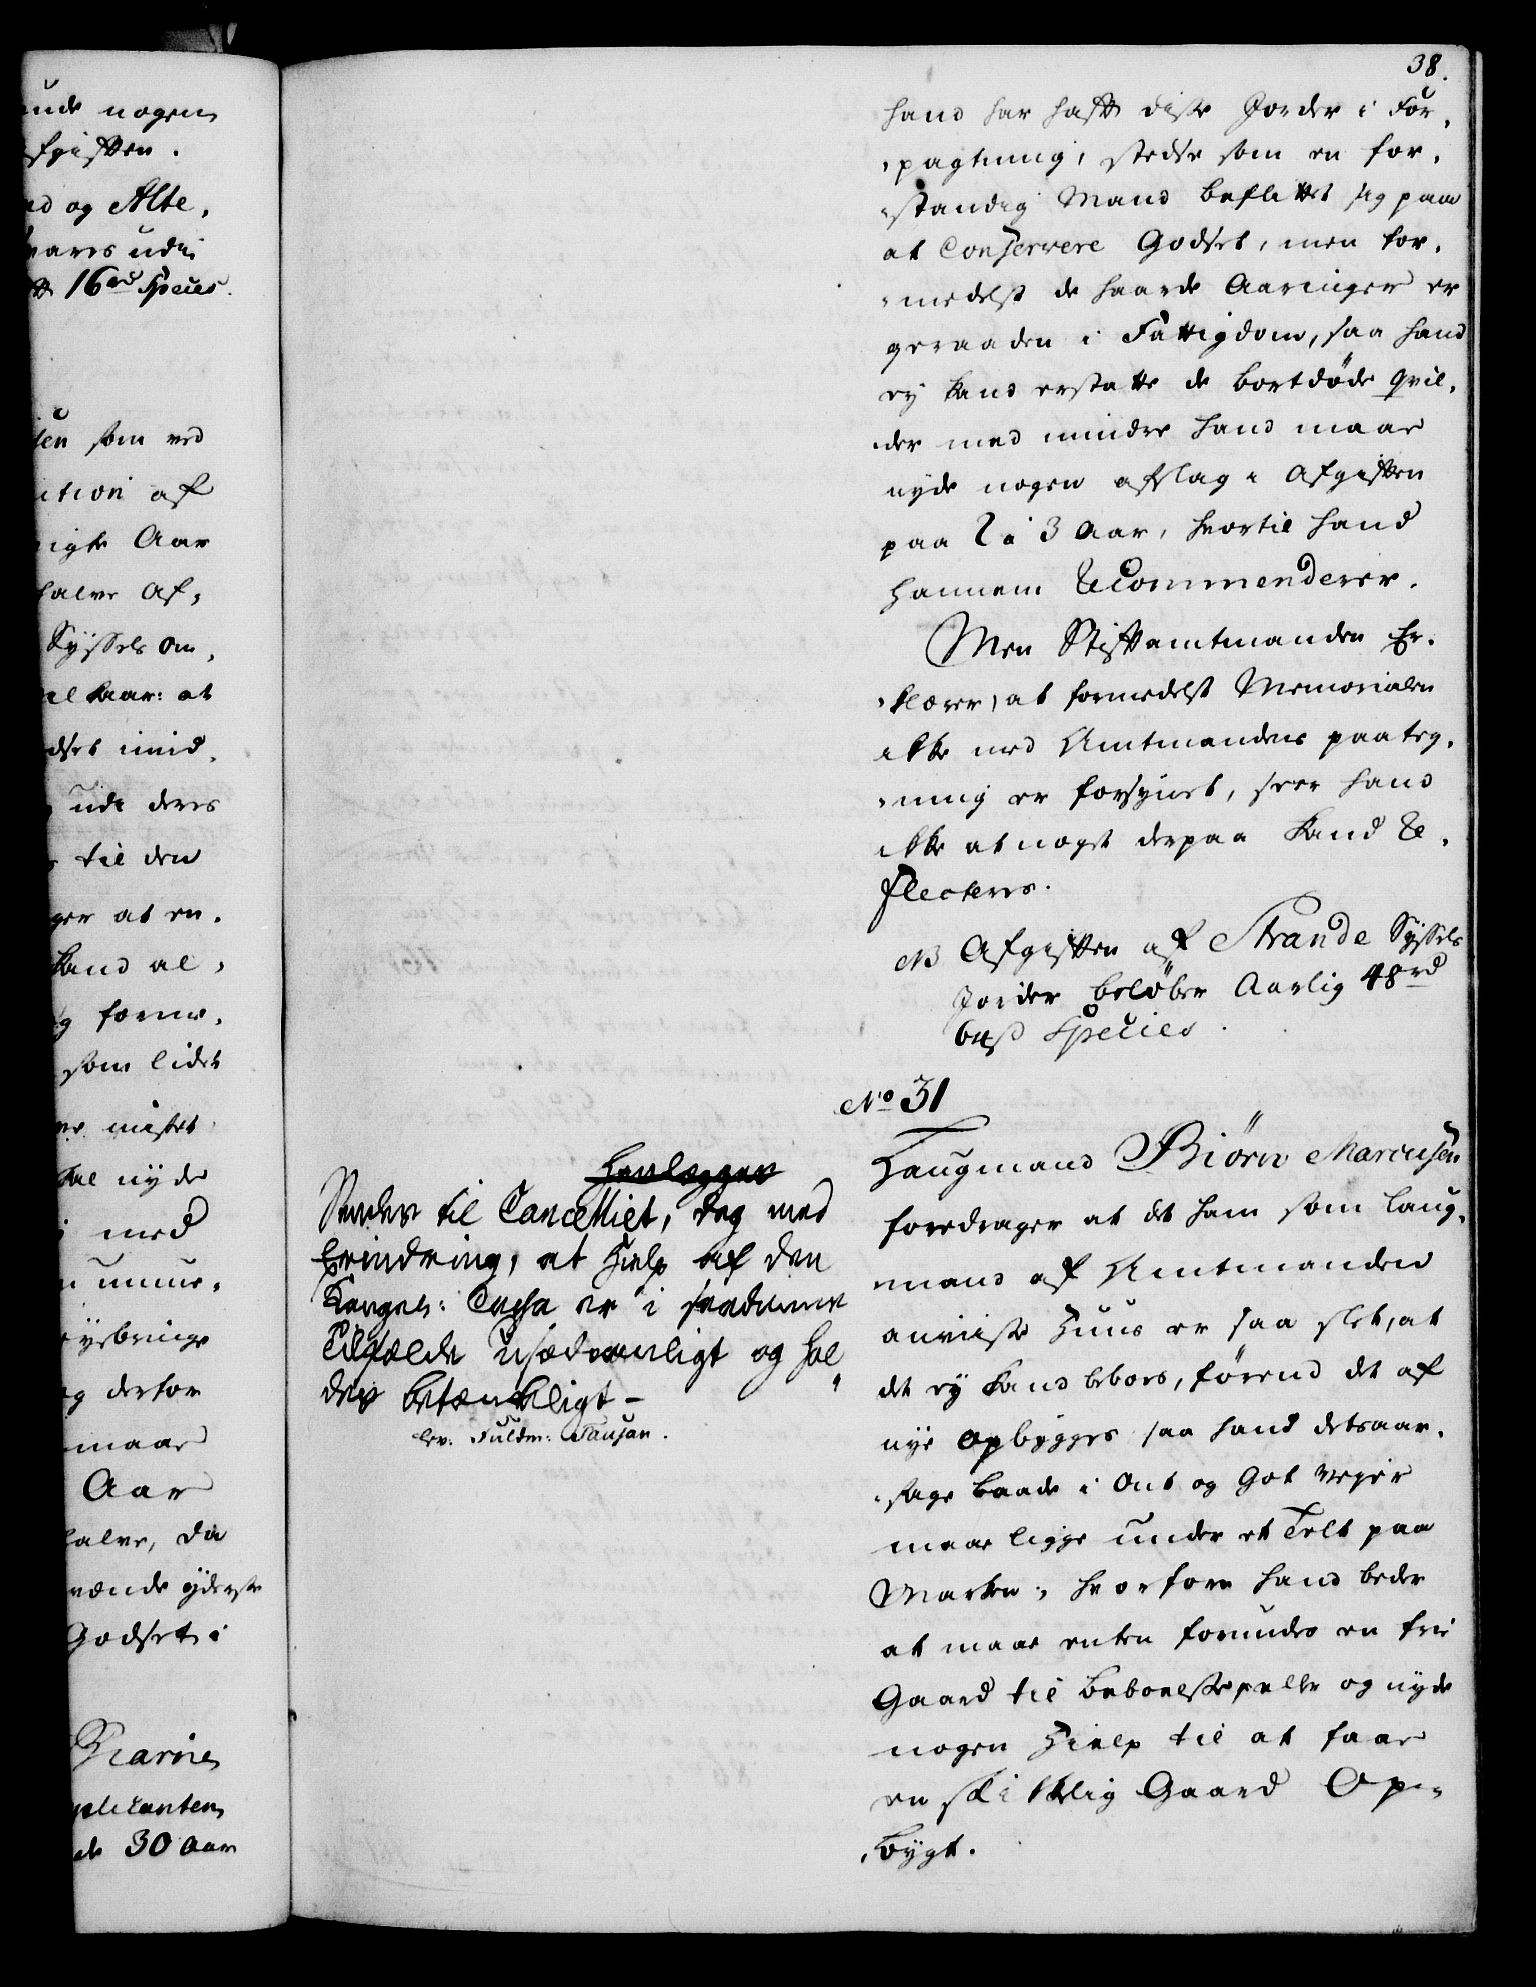 38.
hand har hafft disse Jorder i For,
,pagtning, stedse som en for,
,standig Mand beflittet sig paa
at Conservere Godset, men for,
,medelst de haarde Aaringer er
geraaden i Fattigdom, saa hand
ey kand erstatte de bortdöde Qvil,
,der med mindre hand maae
nyde nogen afslag i Afgiften
paa 2 à 3 Aar, hvortil hand
hannem Recommenderer.
Men Stiftamtmanden Er,
,klærer, at formedelst Memorialen
ikke med Amtmandens paateg,
,ning er forsynet, seer hand
ikke at noget derpaa kand Re,
flecteres.
NB Afgiften af Strande Syssels
Jorder belöber Aarlig 48 rd
64 ß Species.
No 31
Laugmand Biörn Marcusen
foredrager at det ham som Laug,
mand af Amtmanden
anviiste Huus er saa slet, at
det ey kand beboes, förend det af
nye opbygges saa hand detsaar,
,sage baade i Ont og Got Vejer
maae ligge under et Telt paa
Marken, hvorfore hand beder
at maae enten forundes en frie
Gaard til Beboelse eller og nyde
nogen Hielp til at faae
en skikkelig Gaard Op,
,bygt.
Henlægges
Sendes til Cancelliet, dog med
Erindring, at Hielp af den
Kongel: Cassa er i saadanne
Tilfælde Usædvanligt og hol
des betænkeligt –
lev. Fuldm: Tausan.
unde nogen
fgiften.
ed og Alte,
vares udi
16 rd Species.
sen som ved
ition af
nigte Aar
halve Af,
Syssels om,
al kaar: at
dset imid,
ude deres
til den
ger at en,
kand al,
g forme,
som lidet
mistet
kal nyde
med
og derfor
maae
Aar
halve, da
vænde yderste
Godset i
de 30 Aar